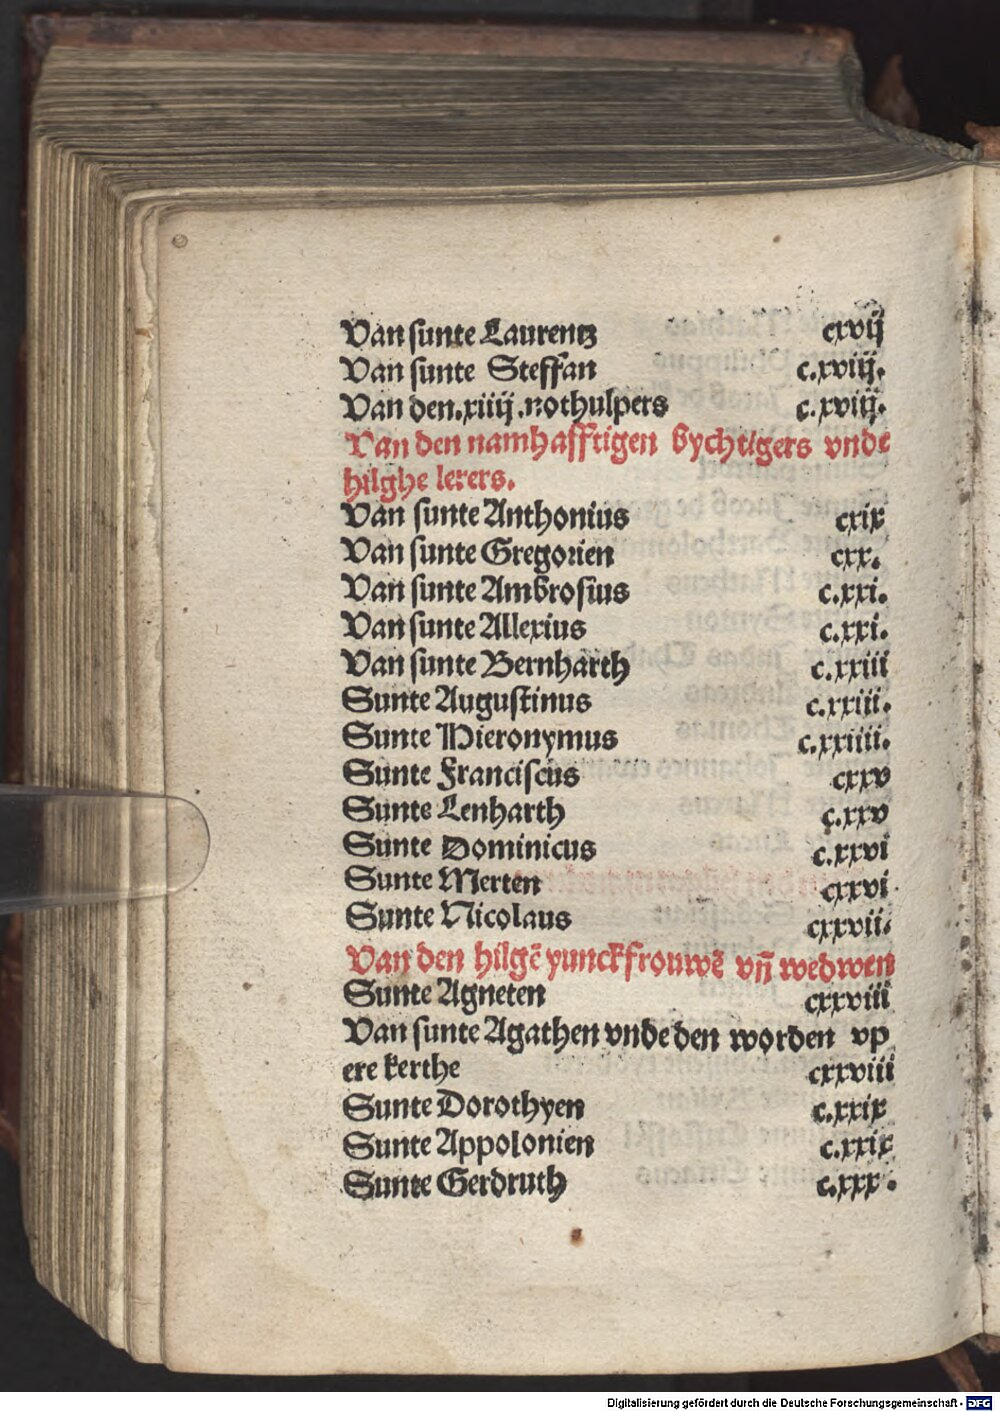 Van sunte Laurentz cxvij
Van sunte Steffan c.xviij.
Van den.xiiij.nothulpers c.xviij.
Van den namhafftigen bychtigers vnde
hilghe lerers.
Van sunte Anthonius cxix
Van sunte Gregorien cxx.
Van sunte Ambrosius c.xxi.
Van sunte Allexius c.xxi.
Van sunte Bernharth c.xxiii
Sunte Augustinus c.xxiii.
Sunte Hieronymus c.xxiiii.
Sunte Franciscus cxxv
Sunte Lenharth c.xxv
Sunte Dominicus c.xxvi
Sunte Merten cxxvi
Sunte Nicolaus cxxvii.
Van den hilgē yunckfrouwē vñ wedwen
Sunte Agneten cxxviii
Van sunte Agathen vnde den worden vp
ere kerthe cxxviii
Sunte Dorothyen c.xxix
Sunte Appolonien c.xxix
Sunte Gerdruth c.xxx.
Digitalisierung gefördert durch die Deutsche Forschungsgemeinschaft - DFG